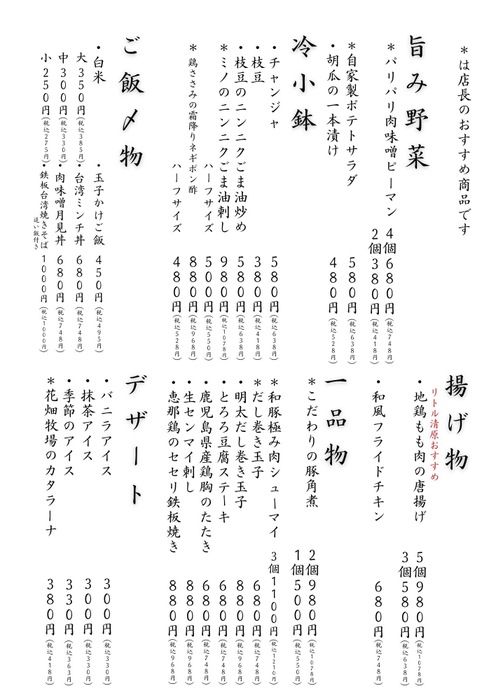 ＊は店長のおすすめ商品です
旨み野菜
＊パリパリ肉味噌ピーマン 4個680円(税込748円)
2個380円(税込418円)
＊自家製ポテトサラダ 580円(税込638円)
・胡瓜の一本漬け 480円(税込528円)
冷小鉢
・チャンジャ 580円(税込638円)
・枝豆 380円(税込418円)
・枝豆のニンニクごま油炒め 580円(税込638円)
＊ミノのニンニクごま油刺し 980円(税込1078円)
ハーフサイズ 500円(税込550円)
＊鶏ささみの霜降りネギポン酢 880円(税込968円)
ハーフサイズ 480円(税込528円)
ご飯〆物
・白米
大350円(税込385円)
中300円(税込330円)
小250円(税込275円)
・玉子かけご飯 450円(税込495円)
・台湾ミンチ丼 680円(税込748円)
・肉味噌月見丼 680円(税込748円)
・鉄板台湾焼きそば 1000円(税込1000円)
追い飯付き
揚げ物
リトル清原おすすめ
・地鶏もも肉の唐揚げ 5個980円(税込1078円)
3個580円(税込638円)
・和風フライドチキン 680円(税込748円)
一品物
＊こだわりの豚角煮 2個980円(税込1078円)
1個500円(税込550円)
＊和豚極み肉シューマイ 3個1100円(税込1210円)
＊だし巻き玉子 680円(税込748円)
・明太だし巻き玉子 880円(税込968円)
・とろろ豆腐ステーキ 680円(税込748円)
・鹿児島県産鶏胸のたたき 680円(税込748円)
・生センマイ刺し 880円(税込968円)
・恵那鶏のセセリ鉄板焼き 880円(税込968円)
デザート
・バニラアイス 300円(税込330円)
・抹茶アイス 300円(税込330円)
・季節のアイス 330円(税込363円)
＊花畑牧場のカタラーナ 380円(税込418円)